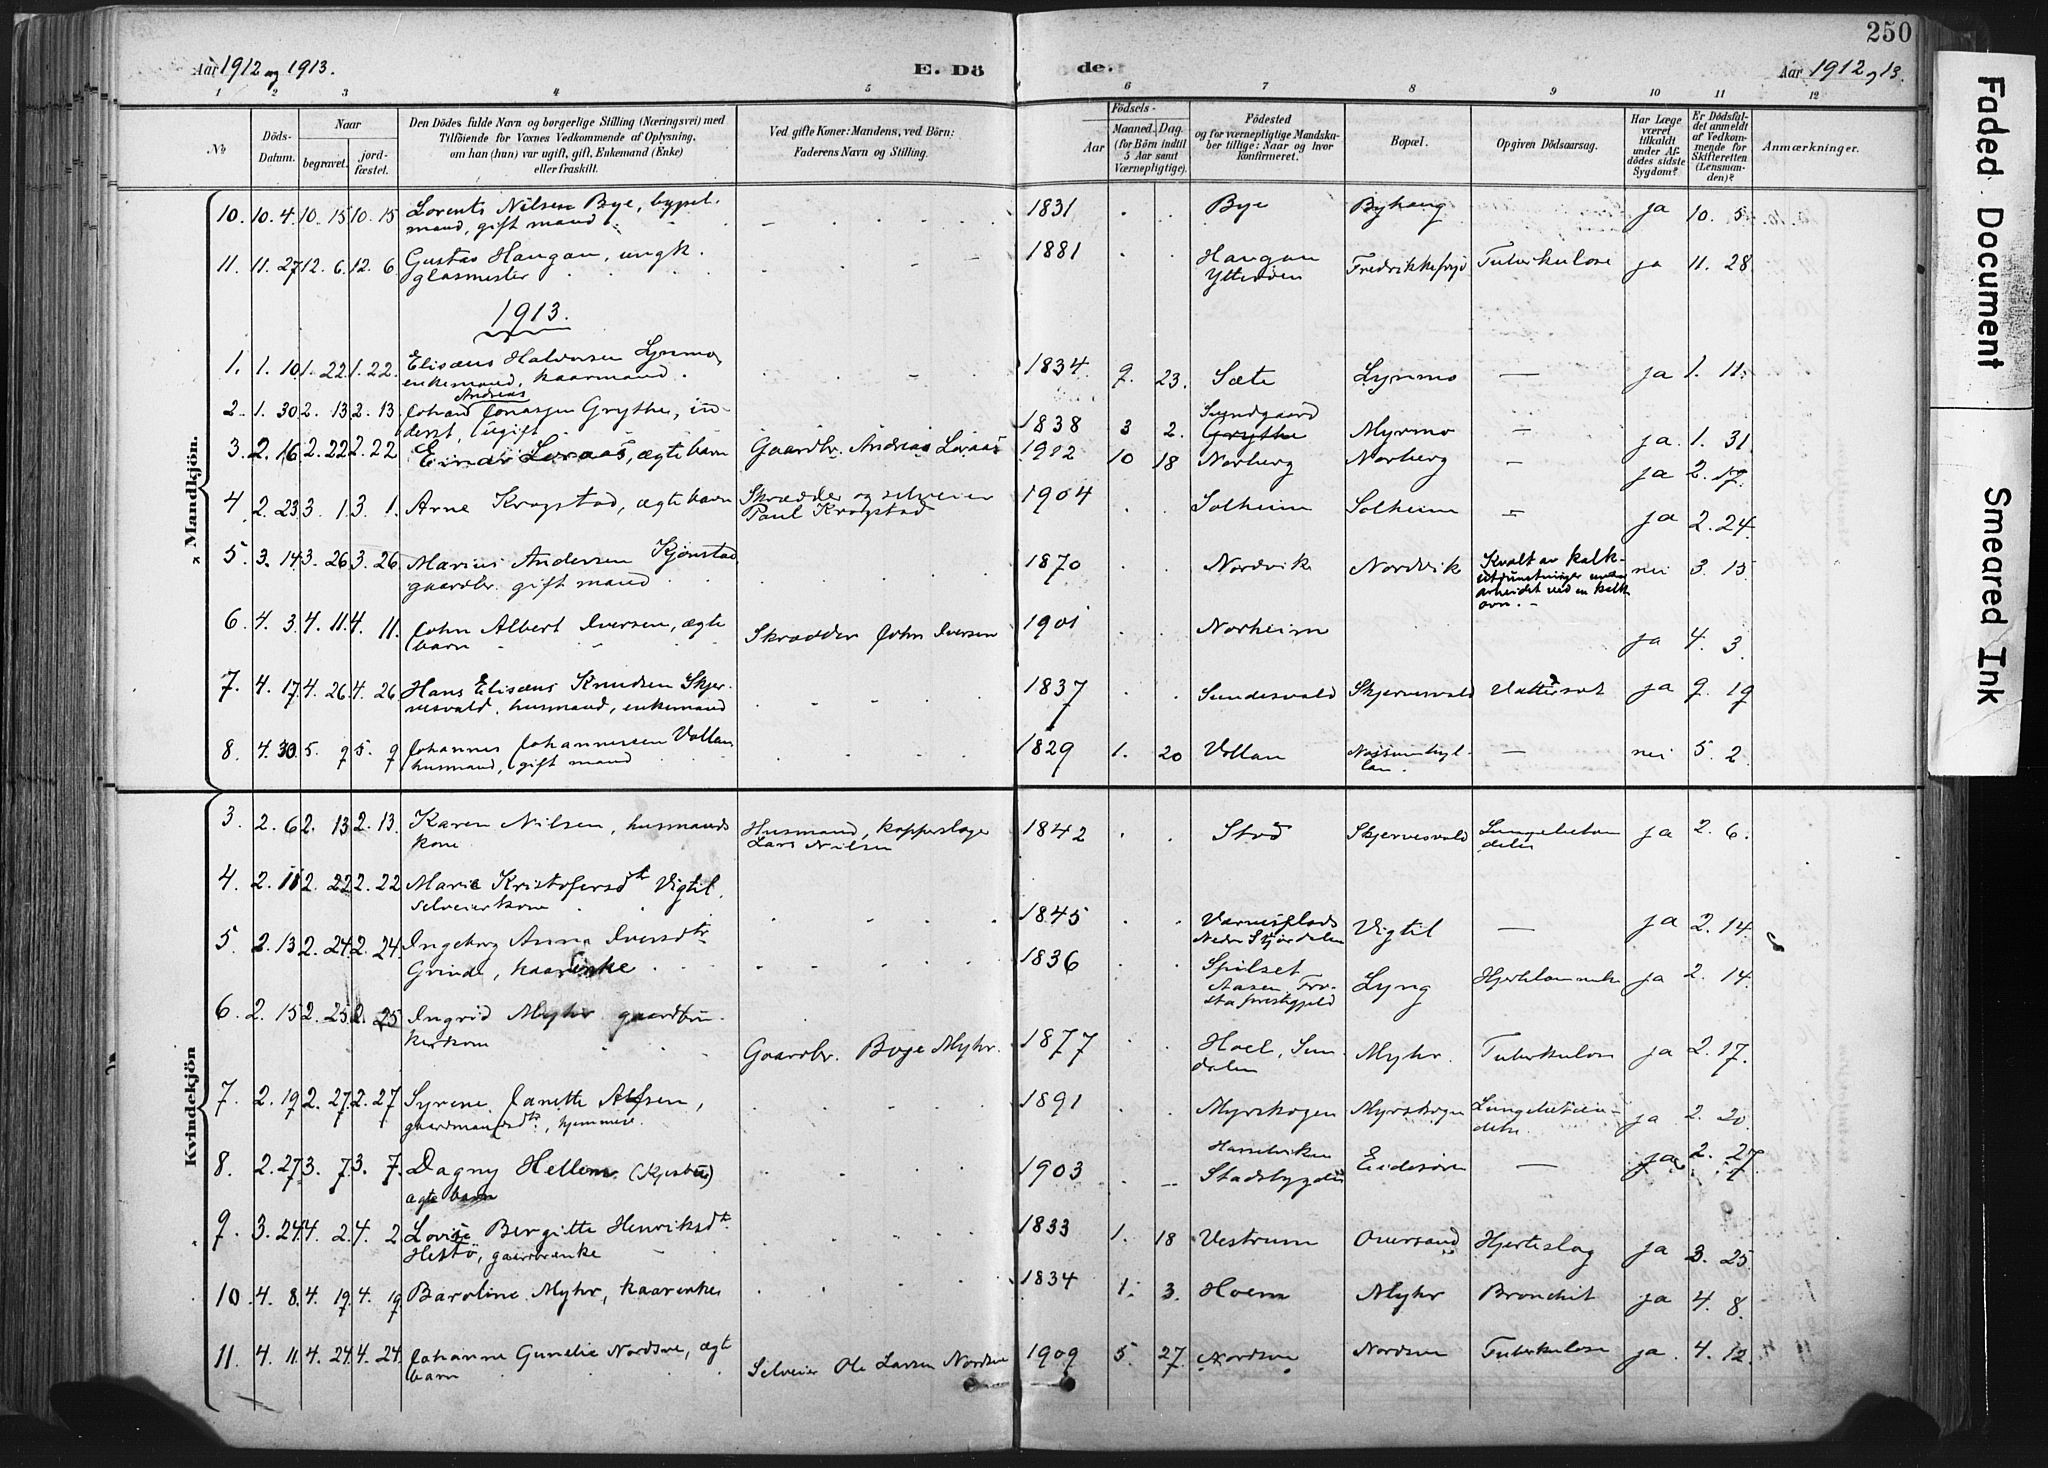 250
Aar 1912 og 1913.
E. Dö de.
Aar 1912 og 13.
1 2 3 4 5 6 7 8 9 10 11 12
No
Döds-Datum.
Naar
begravet.
jord-fæstet.
Den Dödes fulde Navn og borgerlige Stilling (Næringsvei) med
Tilföiende for Voxnes Vedkommende af Oplysning,
om han (hun) var ugift, gift, Enkemand (Enke)
eller fraskilt.
Ved gifte Koner: Mandens, ved Börn:
Faderens Navn og Stilling.
Födsels-
Aar
Maaned. Dag.
(for Börn indtil
5 Aar samt
Værnepligtige).
Födested
og for værnepligtige Mandska-
ber tillige: Naar og hvor
konfirmeret.
Bopæl.
Opgiven Dödsaarsag.
Har Læge
været
tilkaldt
under Af-
dödes sidste
Sygdom?
Er Dödsfal-
det anmeldt
af Vedkom-
mende for
Skifteretten
(Lensman-
den)?
Anmærkninger.
Mandkjön.
10. 10. 4. 10. 15 10. 15 Lorents Nilsen Bye, bygsel- 1831 Bye Byhaug ja 10. 5.
mand, gift mand
11. 11. 27 12. 6. 12. 6. Gustav Haugan, ungk. 1881 Haugan Fredrikkefryd Tuberkulose ja 11. 28.
glasmester Ytterøen
1913.
1. 1. 10 1. 22. 1. 22. Elisæus Halvorsen Lynmo, 1834 9. 23. Sæte Lynmo — ja 1. 11.
enkemand, kaarmand.
Andreas
2. 1. 30 2. 13 2. 13. Johan Jonassen Grythe, in- 1838 3 2. Sundgaard Myrmo — ja. 1. 31.
derst, ugift Grythe
3. 2. 16 2. 22 2. 22 Einar Løraas, ægte barn Gaardbr. Andreas Løraas 1912 10 18 Norberg Norberg — ja 2. 17.
4 2. 23 3. 1. 3. 1. Arne Krogstad, ægte barn Skrædder og selveier 1904 Solheim Solheim — ja 2. 24.
Paul Krogstad
5. 3. 14 3. 26 3. 26 Marius Andersen Kjønstad 1870 Nordvik Nordvik Kvalt av kalk- nei 3. 15
gaardbr. gift mand utdunstninger under
arbeidet ved en kalk
ovn.
6. 4. 3. 4. 11. 4. 11. John Albert Iversen, ægte Skrædder John Iversen 1901 Norheim ja 4. 3.
barn
7. 4. 17. 4. 26 4. 26 Hans Elisæus Knudsen Skjer- 1837 Sundesvald Skjervesvald Vattersot ja 9. 19
vesvald, husmand, enkemand
8. 4. 30. 5. 9 5. 9 Johannes Johannessen Vollan 1829 1. 20 Vollan — nei 5. 2.
husmand, gift mand
Kvindekjön
3. 2. 6 2. 13 2. 13. Karen Nilsen, husmands Husmand, kopperslager 1842 Stod Skjervesvald Lungebetæn ja 2. 6.
kone Lars Nilsen delse
4. 2. 11 2. 22 2. 22 Marie Kristofersdtr Vigtil, 1845 Værnesplads Vigtil — ja 2. 14.
selveierkone Nedre Stjørdalen
5 2. 13 2. 24 2. 24. Ingeborg Anna Iversdtr 1836 Spilset Lyng Hjertelammelse ja 2. 14.
Grinde, kaarenke Aasen, Fro-
sta prestegjeld
6. 2. 15 2. 25 2. 25 Ingrid Myhr gaardbru- Gaardbr. Boje Myhr. 1877 Hoel, Sun- Myhr. Tuberkulose ja 2. 17.
kerkone dalen
7. 2. 19 2. 27 2. 27 Syrene Janette Alfsen, 1891 Myrskogen Myrskogen Lungebetæn- ja 2. 20.
gaardmandsdtr, hjemmev. delse
8. 2. 27 3. 7 3. 7. Dagny Hellem 1903 Hasselviken Eidsøren — ja 2. 27.
ægte barn Stadsbygden
9. 3. 24 4. 2 4. 2 Lovise Bergitte Henriksdtr 1833 1. 18 Vestrum Oversand Hjerteslag ja 3. 25.
Hestø, gaardbrenke
10 4. 8. 4. 19 4. 19 Baroline Myhr, kaarenke 1834 1. 3. Hoem Myhr Bronchit ja 4. 8.
11 4. 11. 4. 24 4. 24. Johanne Gunelie Nordsve, ægte Selveier Ole Larsen Nordsve 1909 5. 27. Nordsve Nordsve Tuberkulose ja. 4. 12.
barn
Faded Document
Smeared Ink